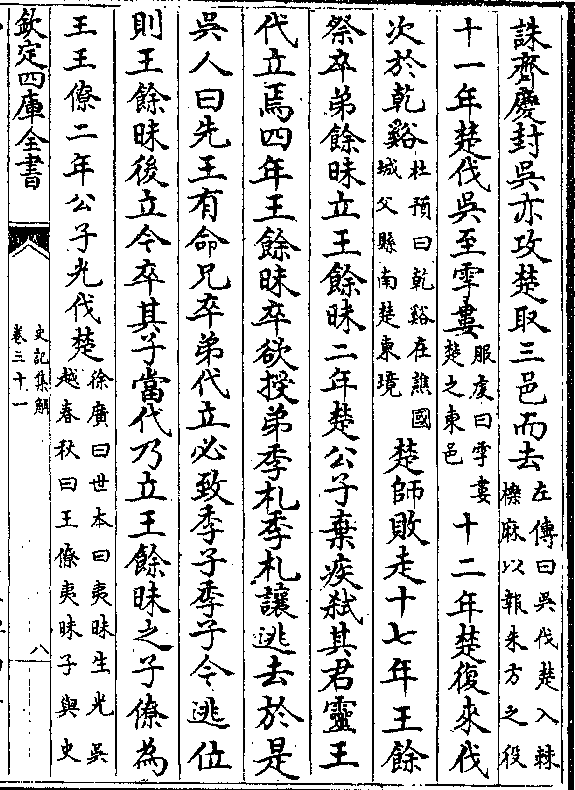 誅齊慶封吳亦攻楚取三邑而去左傳曰吳伐楚入棘櫟麻以報朱方之役
十一年楚伐吳至雩婁服虔曰雩婁楚之東邑十二年楚復來伐
次於乾谿杜預曰乾谿在譙國城父縣南楚東境楚師敗走十七年王餘
祭卒弟餘昧立王餘昧二年楚公子棄疾弑其君靈王
代立焉四年王餘昧卒欲授弟季札季札讓逃去於是
吳人曰先王有命兄卒弟代立必致季子季子今逃位
則王餘昧後立今卒其子當代乃立王餘昧之子僚為
王王僚二年公子光伐楚徐廣曰世本曰夷昧生光吳越春秋曰王僚夷昧子與史
欽定四庫全書
史記集解
卷三十一
八